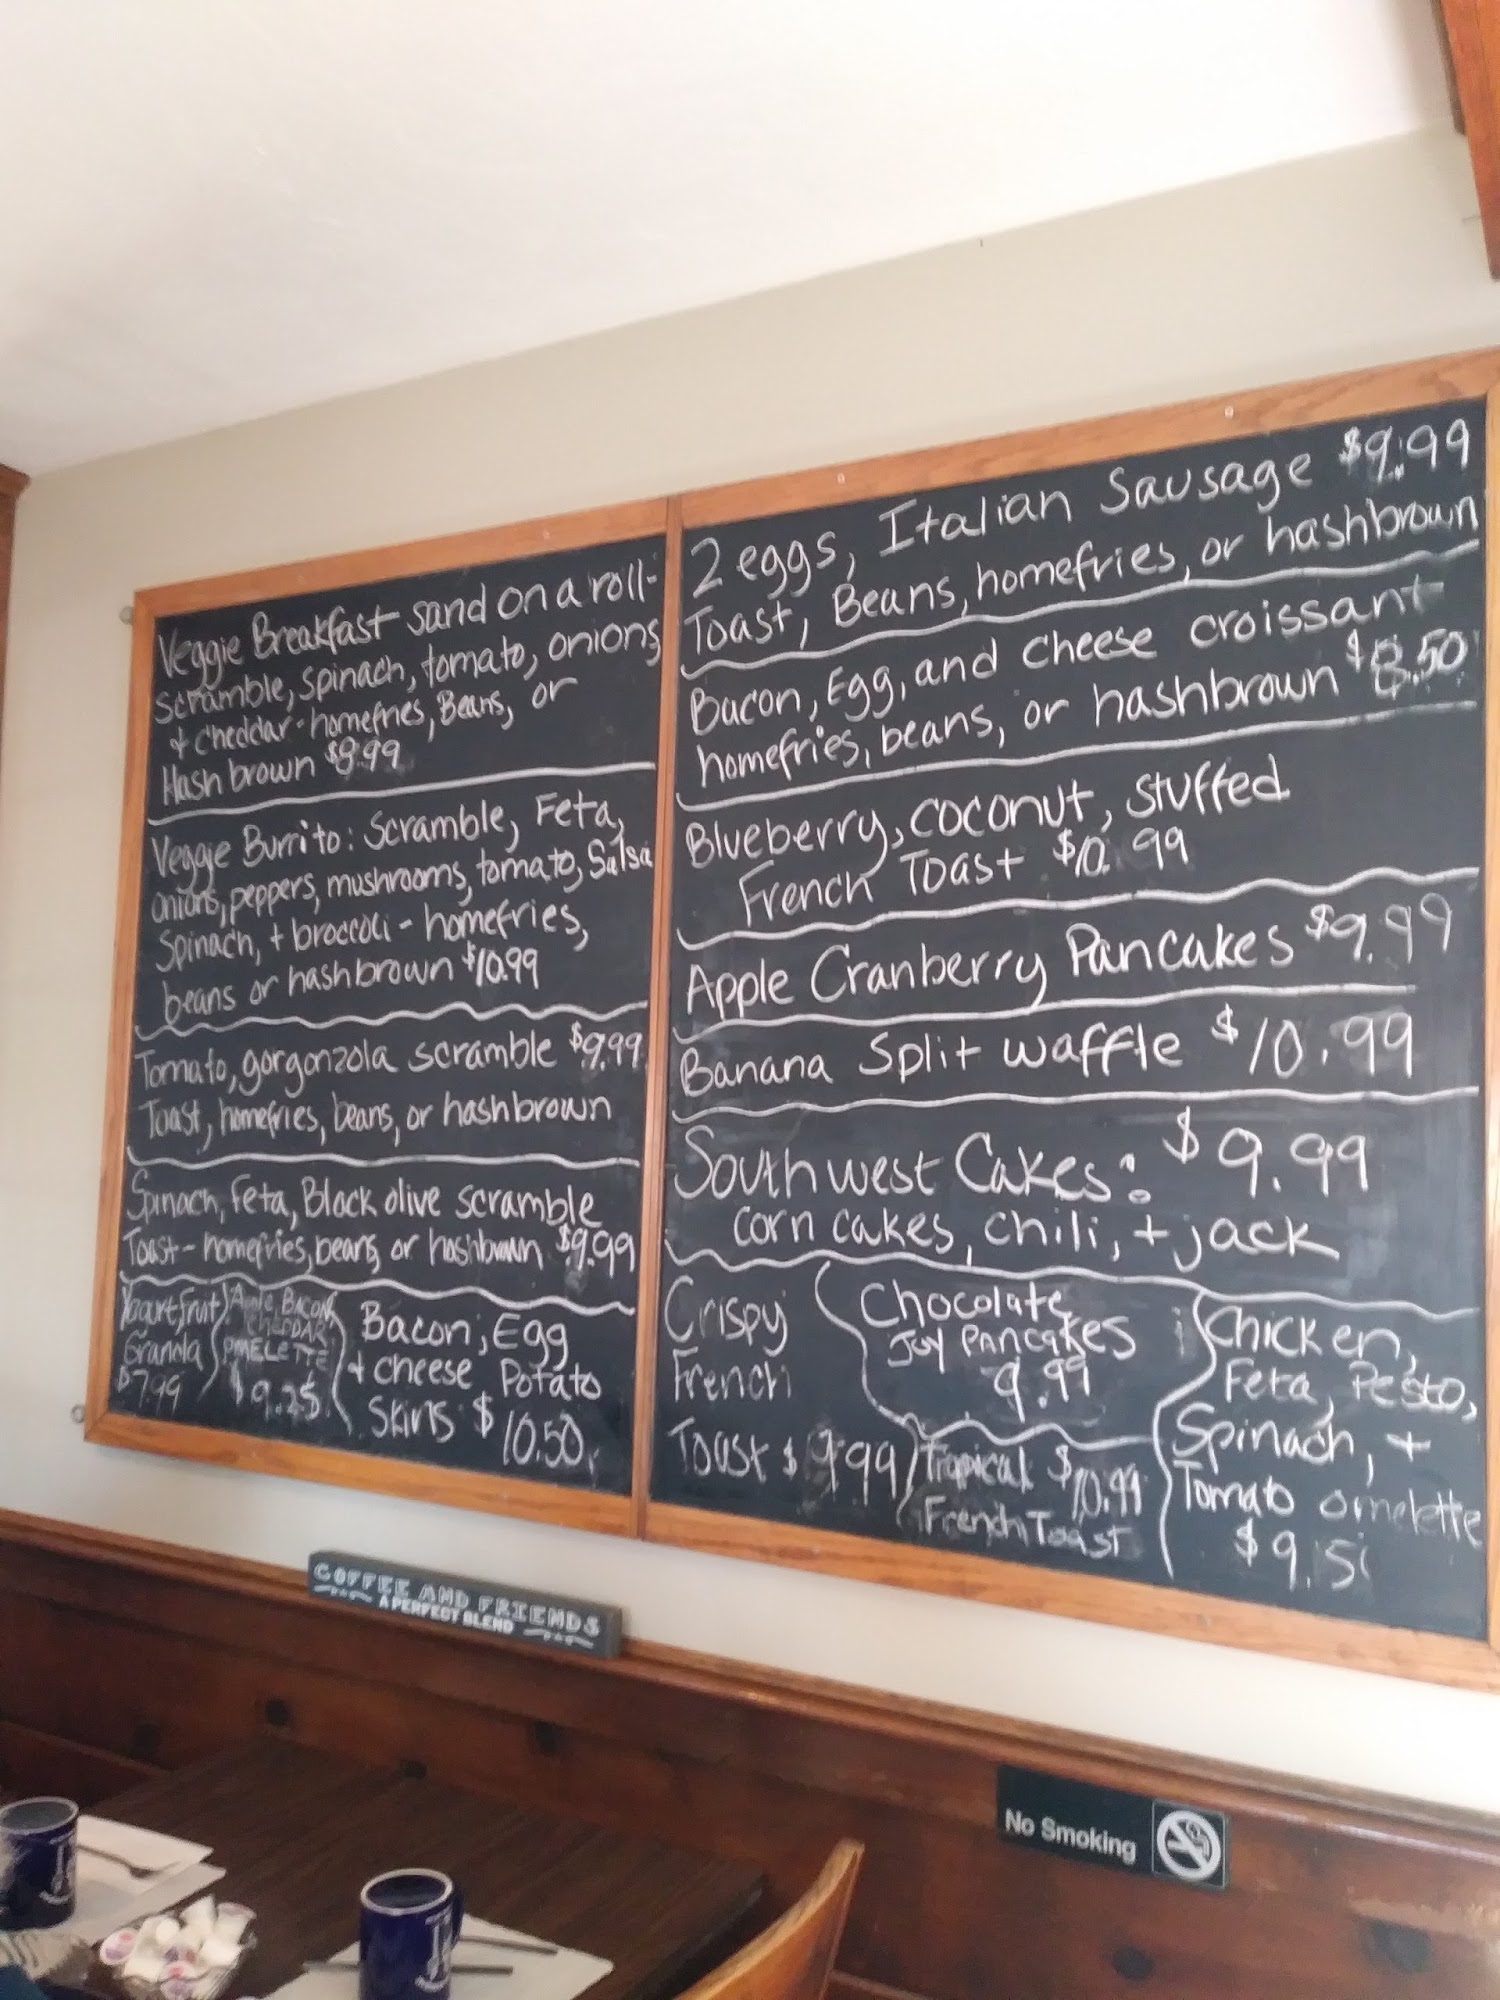 Veggie Breakfast sand on a roll-
scramble, spinach, tomato, onions
+ cheddar - homefries, Beans, or
Hash brown $9.99
Veggie Burrito: Scramble, Feta,
onions, peppers, mushrooms, tomato, Salsa
Spinach, + broccoli - homefries,
beans or hashbrown $10.99
Tomato, gorgonzola scramble $9.99
Toast, homefries, beans, or hashbrown
Spinach, Feta, Black olive scramble
Toast - homefries, beans, or hashbrown $9.99
Yogurt, Fruit
Granola
$7.99
Apple, BACON
CHEDDAR
OMELETTE
$9.25
Bacon, Egg
+ cheese Potato
Skins $10.50
2 eggs, Italian Sausage $9.99
Toast, Beans, homefries, or hashbrown
Bacon, Egg, and cheese croissant
homefries, beans, or hashbrown $8.50
Blueberry, coconut, stuffed
French Toast $10.99
Apple Cranberry Pancakes $9.99
Banana Split waffle $10.99
Southwest Cakes: $9.99
corn cakes, chili, + jack
Crispy
French
Toast $9.99
Chocolate
JOY PANCAKES
9.99
Tropical $10.99
French Toast
Chicken,
Feta, Pesto,
Spinach, +
Tomato omelette
$9.5
COFFEE AND FRIENDS
A PERFECT BLEND
No Smoking